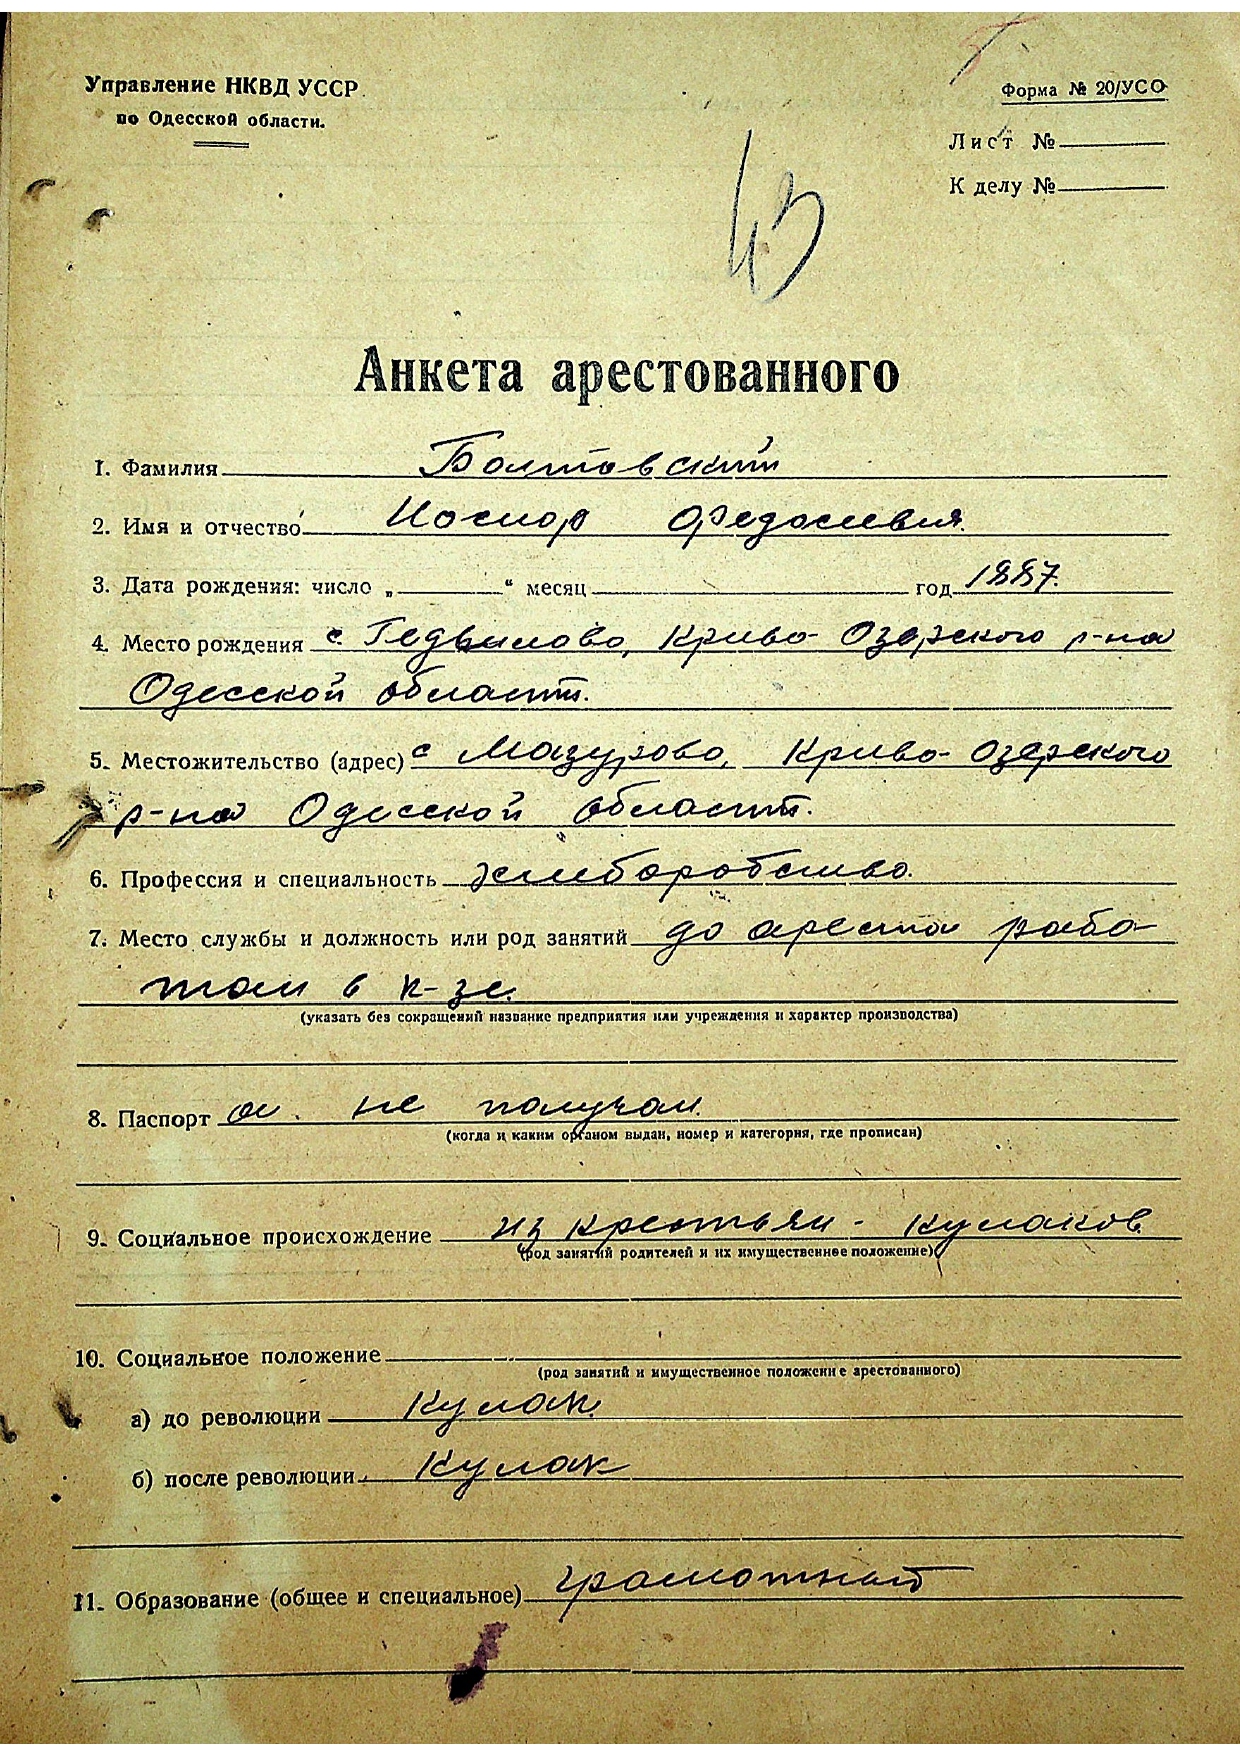 Управление НКВД УССР
по Одесской области.
Форма № 20/УСО
Лист №
К делу №
43
Анкета арестованного
1. Фамилия Болтовский
2. Имя и отчество Иосиф Федосиевич.
3. Дата рождения: число „ “ месяц год 1887.
4. Место рождения с. Гедвилово, Криво-Озерского р-на
Одесской области.
5. Местожительство (адрес) с Мазурово, Криво-Озерского
р-на Одесской области.
6. Профессия и специальность хлиборобство.
7. Место службы и должность или род занятий до ареста рабо-
тал в к-зе.
(указать без сокращений название предприятия или учреждения и характер производства)
8. Паспорт не получал.
(когда и каким органом выдан, номер и категория, где прописан)
9. Социальное происхождение из крестьян - кулаков
(род занятий родителей и их имущественное положение)
10. Социальное положение
(род занятий и имущественное положение арестованного)
а) до революции Кулак.
б) после революции Кулак
11. Образование (общее и специальное) грамотный